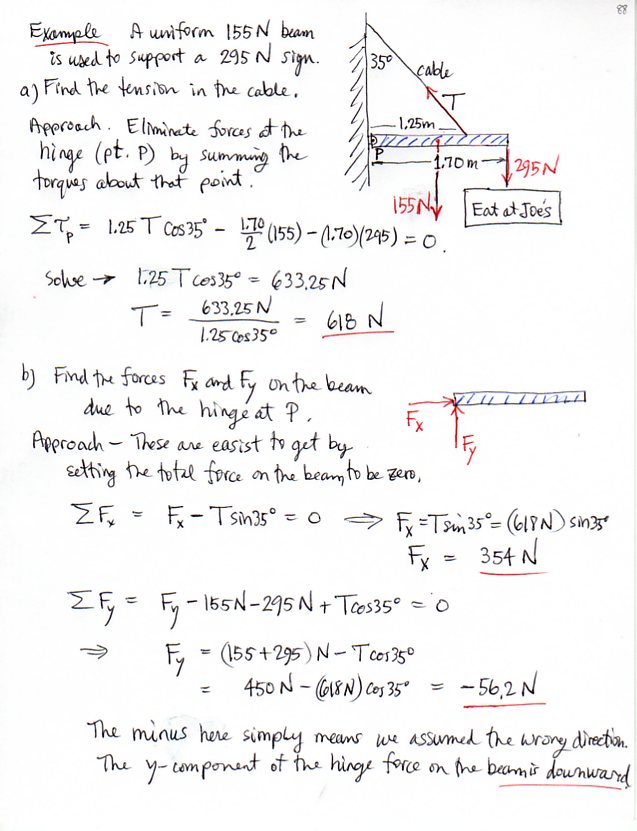 88
Example A uniform 155N beam
is used to support a 295N sign.
a) Find the tension in the cable.
Approach. Eliminate forces at the
hinge (pt. P) by summing the
torques about that point.
35°
cable
T
1.25m
P
1.70m
295N
155N
Eat at Joe's
Στp = 1.25 T Cos35° - 1.70/2 (155) - (1.70)(295) = 0.
Solve → 1.25 T cos35° = 633.25N
T = 633.25N / 1.25 Cos35° = 618 N
b) Find the forces Fx and Fy on the beam
due to the hinge at P.
Fx
Fy
Approach - These are easist to get by
setting the total force on the beam to be zero.
ΣFx = Fx - Tsin35° = 0 ⇒ Fx = Tsin35° = (618N) sin35°
Fx = 354 N
ΣFy = Fy - 155N - 295N + Tcos35° = 0
⇒ Fy = (155+295)N - T cos35°
= 450N - (618N) cos35° = -56.2N
The minus here simply means we assumed the wrong direction.
The y-component of the hinge force on the beam is downward